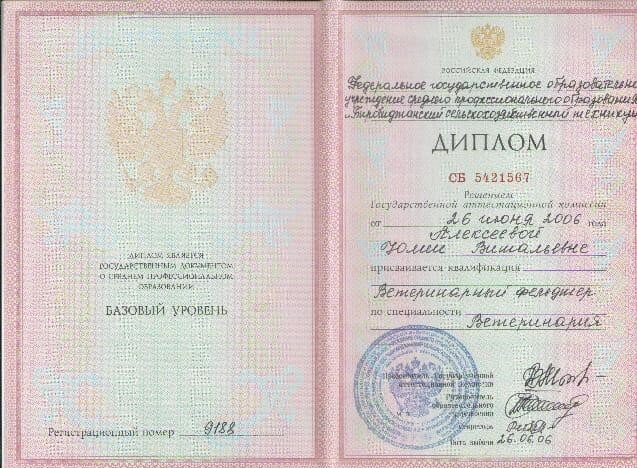 ДИПЛОМ ЯВЛЯЕТСЯ
ГОСУДАРСТВЕННЫМ ДОКУМЕНТОМ
О СРЕДНЕМ ПРОФЕССИОНАЛЬНОМ
ОБРАЗОВАНИИ
БАЗОВЫЙ УРОВЕНЬ
Регистрационный номер 9188
РОССИЙСКАЯ ФЕДЕРАЦИЯ
Федеральное государственное образовательное
учреждение среднего профессионального образования
"Биробиджанский сельскохозяйственный техникум
ДИПЛОМ
СБ 5421567
Решением
Государственной аттестационной комиссии
от 26 июня 2006 года
Алексеевой
Юлии Витальевне
присваивается квалификация
Ветеринарный фельдшер
по специальности
Ветеринария
Председатель Государственной
аттестационной комиссии
Руководитель
образовательного
учреждения
Секретарь
Дата выдачи 26.06.06